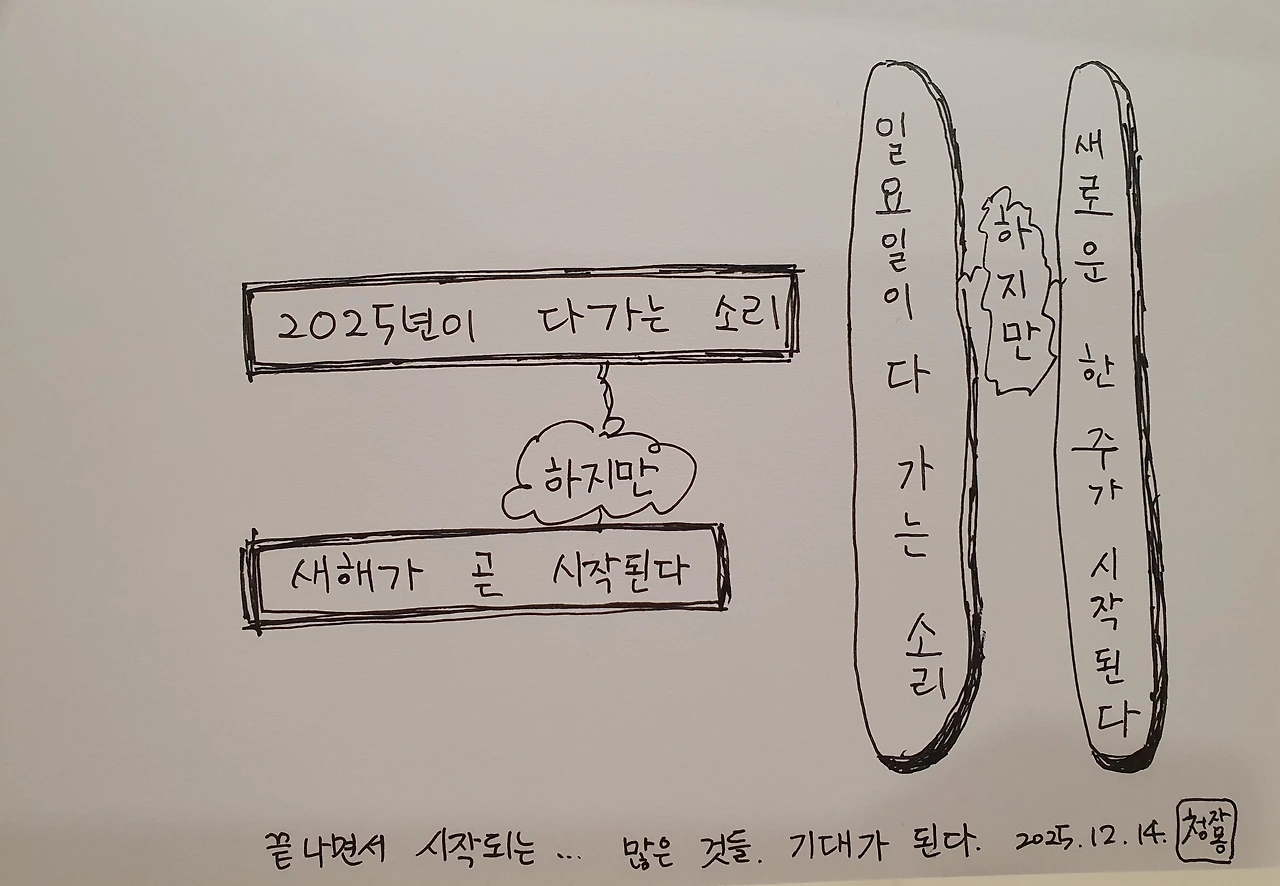 2025년이 다가는 소리
하지만
새해가 곧 시작된다
일요일이 다 가는 소리
하지만
새로운 한 주가 시작된다
끝나면서 시작되는... 많은 것들. 기대가 된다. 2025.12.14.
청자몽